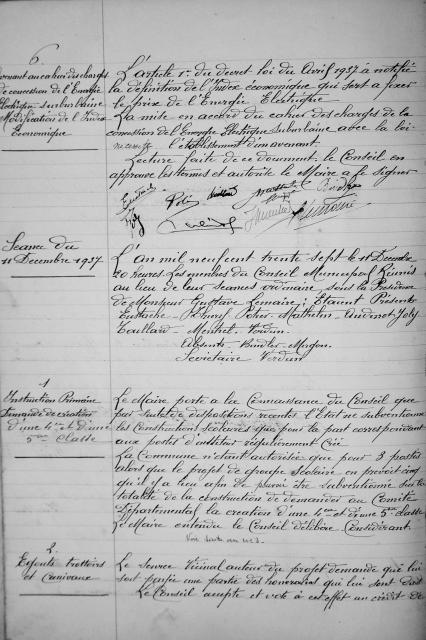 6.
Avenant au cahier des charges
de concession de l'Energie
Electrique suburbaine
Modification de l'Index
Economique
L'article 1er du decret loi du Avril 1937 a notifié
la définition de l'Index économique qui sert a fixer
le prix de l'Energie Electrique
La mise en accord du cahier des charges de la
concession de l'Energie Electrique Suburbaine avec la loi
nécessite l'établissement d'un avenant
Lecture faite de ce document le Conseil en
approuve les termes et autorise le Maire a le signer
Séance du
11 Decembre 1937
L'an mil neuf cent trente sept le 11 Decembre
20 heures Les membres du Conseil Municipal Réunis
au lieu de leur séances ordinaire, sous la Présidence
de Monsieur Gustave Lemaire; Etaient Présents
Eustache - Petit Mathelin - Joly
Verdun.
Absents
Secrétaire Verdun
1
Instruction Primaire
Demande de création
d'une 4me et d'une
5me classe
Le Maire porte a la Connaissance du Conseil que
par suite de dispositions recentes l'Etat ne subventionne
les Constructions scolaires que pour la part correspondant
aux postes d'instituteur régulièrement Créé
La Commune n'étant autorisée que pour 3 postes
alors que le projet de groupe Scolaire en prévoit cinq
qu'il y a lieu afin de pouvoir être subventionné sur la
totalité de la construction de demander au Comité
Départemental la création d'une 4me et d'une 5me classe
Le Maire entendu le Conseil délibère. Considérant
Voir suite au
2.
trottoirs
et caniveaux
Le Service Vicinal auteur du projet demande que lui
soit payée une partie des honoraires qui lui sont dus
Le Conseil accepte et vote à cet effet un crédit de